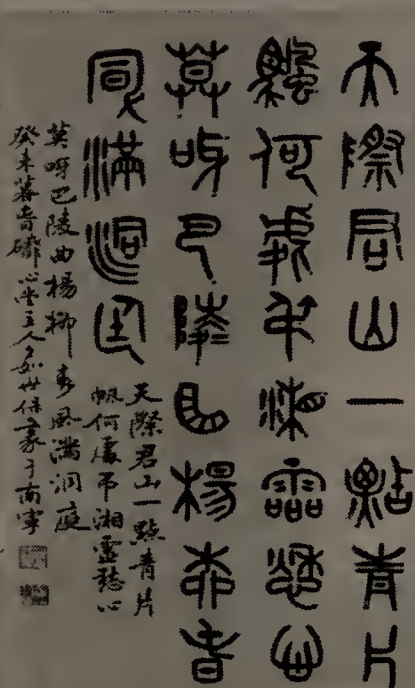 天際君山一點青片
帆何處弔湘靈愁心
莫巴陵曲楊柳春
風滿洞庭
天際君山一點青片
帆何處弔湘靈愁心
莫巴陵曲楊柳春風滿洞庭
癸未暮春心堂主人世保篆于南寧